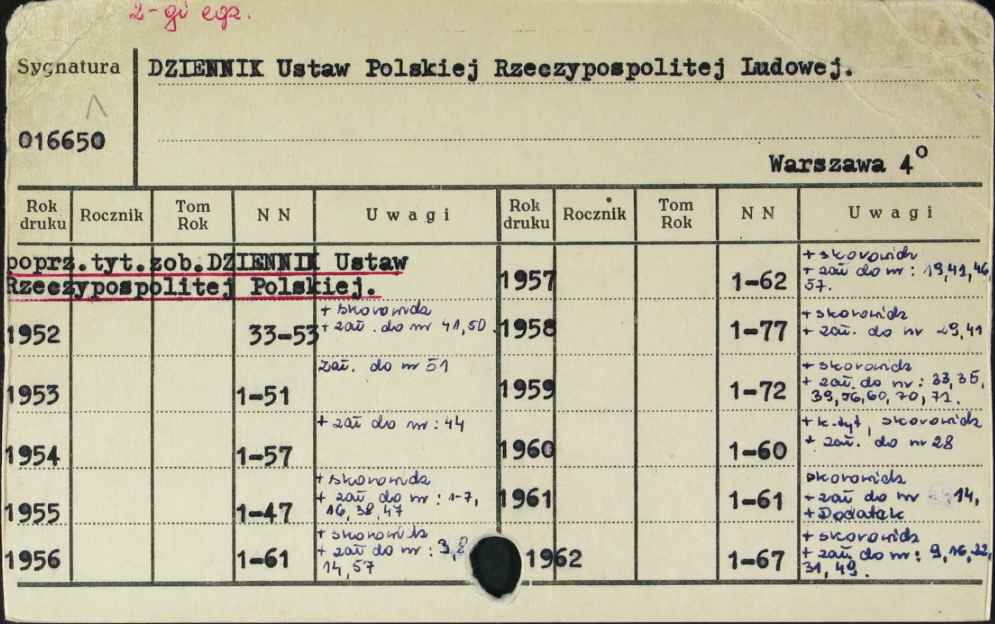 2-gi egz.
Sygnatura
DZIENNIK Ustaw Polskiej Rzeczypospolitej Ludowej.
016650
Warszawa 4°
Rok druku Rocznik Tom Rok N N Uwagi Rok druku Rocznik Tom Rok N N Uwagi
poprz.tyt.zob.DZIENNIK Ustaw
Rzeczypospolitej Polskiej.
1952 33-53 + skorowidz
+ zał. do nr 41,50.
1953 1-51 zał. do nr 51
1954 1-57 + zał do nr: 44
1955 1-47 + skorowidz
+ zał do nr: 1-7,
16, 38, 47
1956 1-61 + skorowidz
+ zał do nr: 3, 8
14, 57
1957 1-62 + skorowidz
+ zał do nr: 19, 41, 46
57.
1958 1-77 + skorowidz
+ zał. do nr 29, 41
1959 1-72 + skorowidz
+ zał. do nr: 33, 35,
39, 56, 60, 70, 71.
1960 1-60 + k.tyt, skorowidz
+ zał. do nr 28
1961 1-61 skorowidz
+ zał do nr 14,
+ Dodatek
1962 1-67 + skorowidz
+ zał. do nr: 9, 16, 22,
31, 49.